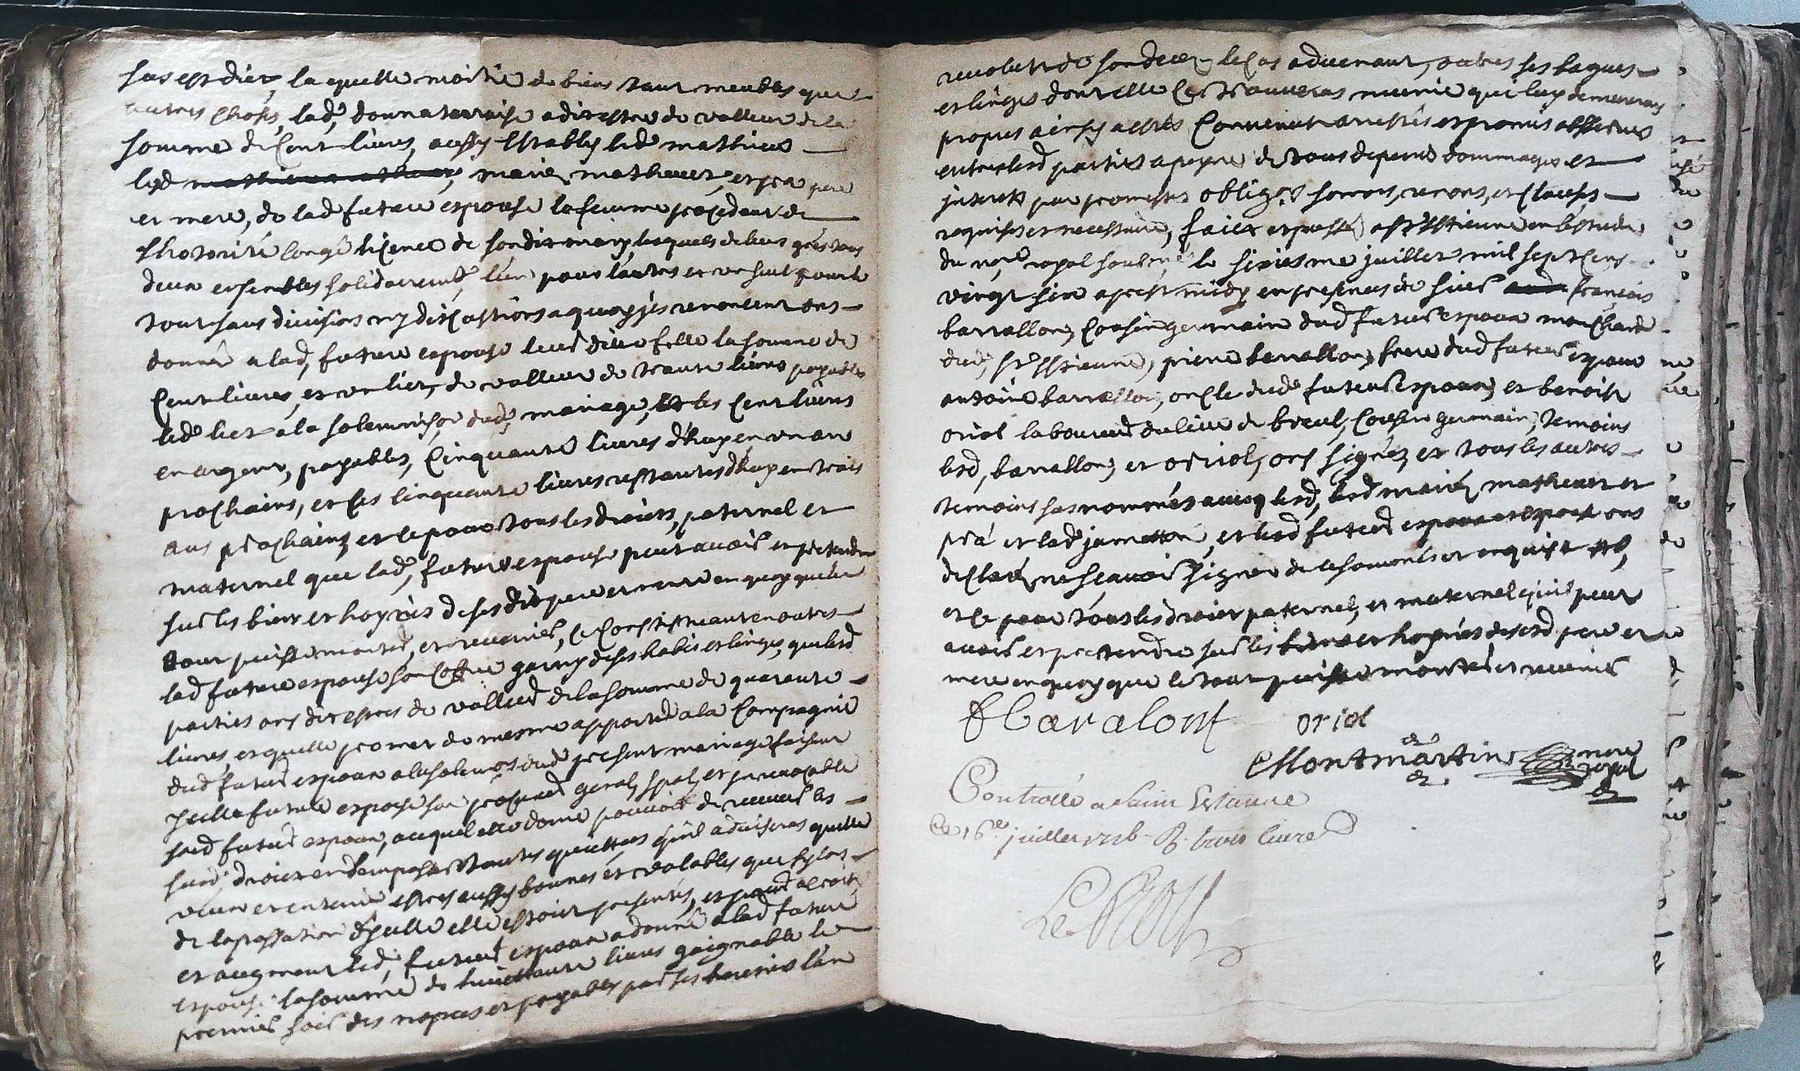 sus est dict, la quelle moitié de biens tant meubles que
autres choses, lad, donnaterraise a dit estre de valleur de la
somme de cent livres, aussy establys led mathieu
led marie, mathevet, et pra pere
et mere, de lad future espouse la femme procedant de
lhotorité congé licence de son dit mary, lesquels de leurs grés tous
deux ensembles solidairemt, lun pour lautre et un seul pour le
tout sans division ny discastions a quoy ils renoncent ont
donné a lad, future espouse leur dite fille la somme de
cent livres, et un lict, de valleur de trante livres payables
led lict a la solemnison dud, mariage, et les cent livres
en argent, payables, cinquante livres dhuy en un an
prochains, et les cinquante livres restantes dhuy en trois
ans prochains, et ce pour tous les droicts, paternel et
maternel que lad, future espouse peut avoir et pretendre
sur les biens et hoyries de ses dits pere et mere en quoy que le
tout puisse monter, et revenir, ce constituant en outre
lad future espouse son coffre garny de ses habis et linges, que lesd
parties ont dit estre de valleur de la somme de quarante
livres, et quelle promet de mesme apporter a la compagnie
dud futur espoux a la solemon dud present mariage faisant
icelle future espouse son procureur geral, spal, et irrevocable
sond futur espoux, auquel elle donne pouvoir de recevoir les
susd, droits en dempasser toutes quittances quil advisera quelle
veux et entend estre aussy bonnes et vallables que sy lors
de la passation dicelle elle estoit presente, et pour alcoit
et augment led, futur espoux a donné a lad future
espouse la somme de livres gaignable le
premier soir des nopces et payables par ses heritiers lan
revolut de son deces le cas advenant, outres ses bagues
et linges dont elle ce trouveras munie qui luy demeureront
propres ainsy a estés convenut arrestés et promis observer
entre lesd parties a peyne de tous depens dommages et
interest par promesses obligons soumons, renons, et clauses
requises et necessaires, faict et passé a st estienne en lestude
du nore royal soubné le sixiesme juillet mil sept cens
vingt six apres midy en presences de sieur françois
barrallon, cousin germain dud futur espoux marchand
dud, st estienne, pierre barrallon, frere dud futur espoux
antoine barrallon, oncle dud futur espoux, et benoist
oriol laboureur du lieu de breul, cousin germain, temoins
lesd, barrallon, et oriol, ont signés, et tous les autres
temoins sus nommés avecq lesd, lesd marie, mathevet et
pra et lad jametton, et lesd futurs espoux et espouse ont
declaré ne scavoir signer de ce somonés et enquist
et ce pour tous les droits paternel, et maternel quil peut
avoir et prettendre sur les biens et hoyries desd pere et
mere en quoy que le tout puisse monter et revenir
fbaralon oriol
Montmartin nore royal
Controllé a Saint Estienne
le 16e juillet 1726 R trois livres